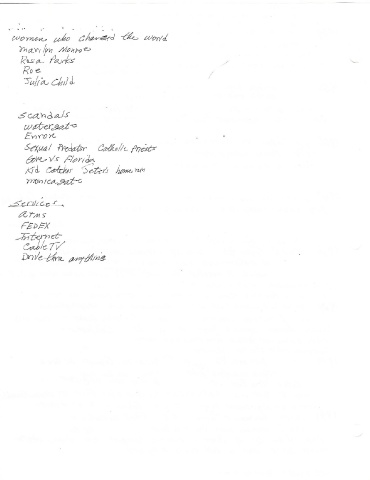 women who changed the world
Marilyn Monroe
Rosa Parks
Roe
Julia Child
Scandals
Watergate
Enron
Sexual Predator Catholic Priests
Gore vs Florida
Kid Catcher Jeter's home run
monicagate
Services
ATMs
FEDEX
Internet
Cable TV
Drive thru anything